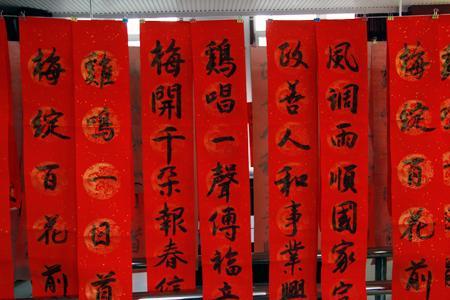 梅綻百花前
風調雨順國家
政善人和事業興
鶏唱一聲傳福
梅開千朵報春信
雞鳴一日首
梅綻百花前